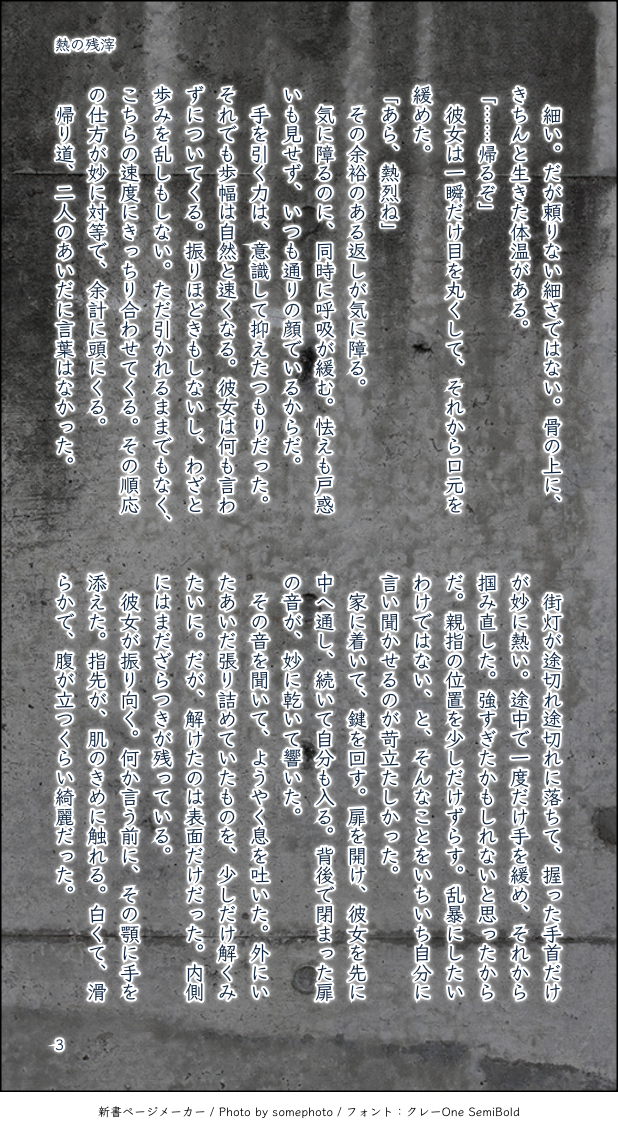 熱の残滓
細い。だが頼りない細さではない。骨の上に、
きちんと生きた体温がある。
「……帰るぞ」
彼女は一瞬だけ目を丸くして、それから口元を
緩めた。
「あら、熱烈ね」
その余裕のある返しが気に障る。
気に障るのに、同時に呼吸が緩む。怯えも戸惑
いも見せず、いつも通りの顔でいるからだ。
手を引く力は、意識して抑えたつもりだった。
それでも歩幅は自然と速くなる。彼女は何も言わ
ずについてくる。振りほどきもしないし、わざと
歩みを乱しもしない。ただ引かれるままでもなく、
こちらの速度にきっちり合わせてくる。その順応
の仕方が妙に対等で、余計に頭にくる。
帰り道、二人のあいだに言葉はなかった。
街灯が途切れ途切れに落ちて、握った手首だけ
が妙に熱い。途中で一度だけ手を緩め、それから
掴み直した。強すぎたかもしれないと思ったから
だ。親指の位置を少しだけずらす。乱暴にしたい
わけではない、と、そんなことをいちいち自分に
言い聞かせるのが苛立たしかった。
家に着いて、鍵を回す。扉を開け、彼女を先に
中へ通し、続いて自分も入る。背後で閉まった扉
の音が、妙に乾いて響いた。
その音を聞いて、ようやく息を吐いた。外にい
たあいだ張り詰めていたものを、少しだけ解くみ
たいに。だが、解けたのは表面だけだった。内側
にはまだざらつきが残っている。
彼女が振り向く。何か言う前に、その顎に手を
添えた。指先が、肌のきめに触れる。白くて、滑
らかで、腹が立つくらい綺麗だった。
3
新書ページメーカー / Photo by somephoto / フォント：クレーOne SemiBold